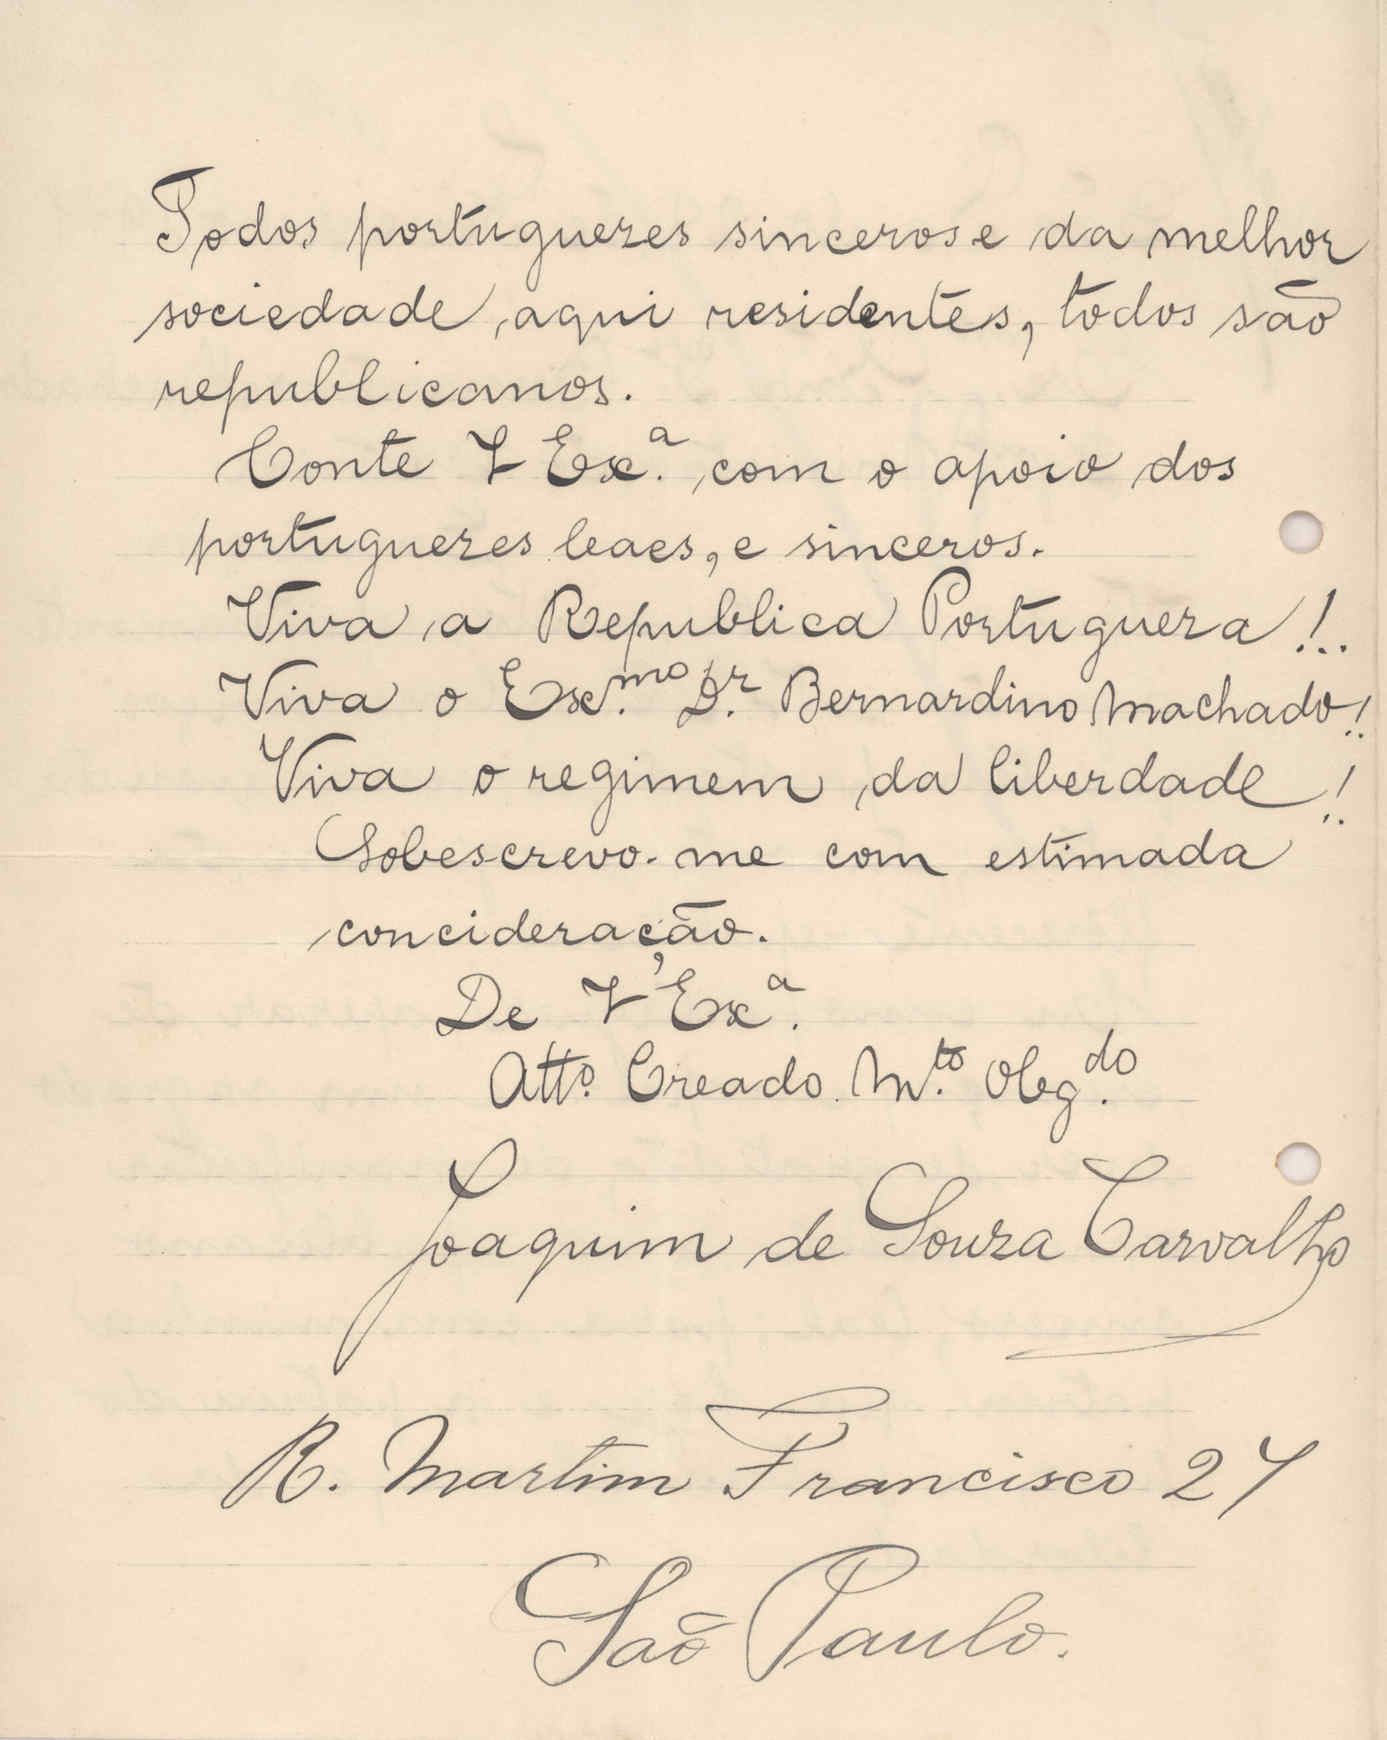 Todos portuguezes sinceros e da melhor
sociedade, aqui residentes, todos são
republicanos.
Conte V Ex.ª com o apoio dos
portuguezes leaes, e sinceros.
Viva a Republica Portugueza!..
Viva o Ex.mo Dr. Bernardino Machado!.
Viva o regimem da liberdade!.
Sobescrevo-me com estimada
concideração.
De V Ex.ª
Att.º Creado M.to Obg.do
Joaquim de Souza Carvalho
R. Martim Francisco 27
São Paulo.